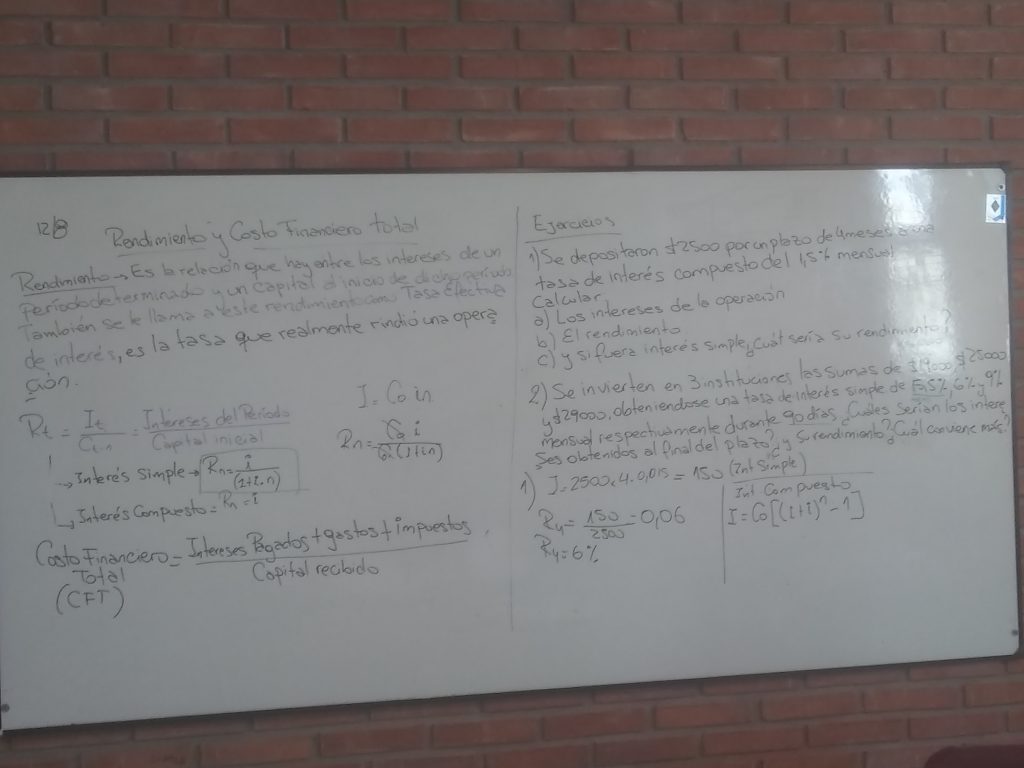 12/8
Rendimiento y Costo Financiero total
Rendimiento → Es la relación que hay entre los intereses de un
período determinado y un Capital al inicio de dicho período
También se le llama a este rendimiento como Tasa Efectiva
de interés, es la tasa que realmente rindió una opera
ción.
I = Co i n
Rt = It / Ct-n = Intereses del Período / Capital inicial
Rn = Co i / Co (1+i.n)
→ Interés Simple → Rn = i / (1+i.n)
→ Interés Compuesto = Rn = i
Costo Financiero = Intereses Pagados + gastos + impuestos / Capital recibido
Total
(CFT)
Ejercicios
1) Se depositaron $2500 por un plazo de 4 meses a una
tasa de interés compuesto del 1,5% mensual
Calcular
a) Los intereses de la operación
b) El rendimiento
c) y si fuera interés simple ¿Cuál sería su rendimiento?
2) Se invierten en 3 instituciones las sumas de $25000
y $29000, obteniendose una tasa de interés simple de 5%, 6% y 9%
mensual respectivamente durante 90 días, ¿Cuáles serían los intere
ses obtenidos al final del plazo? ¿y su rendimiento? ¿Cuál conviene más?
1) I = 2500.4.0,015 = 150 (Int Simple)
R4 = 150 / 2500 = 0,06
R4 = 6%
Int Compuesto
I = Co [(1+i)^n - 1]